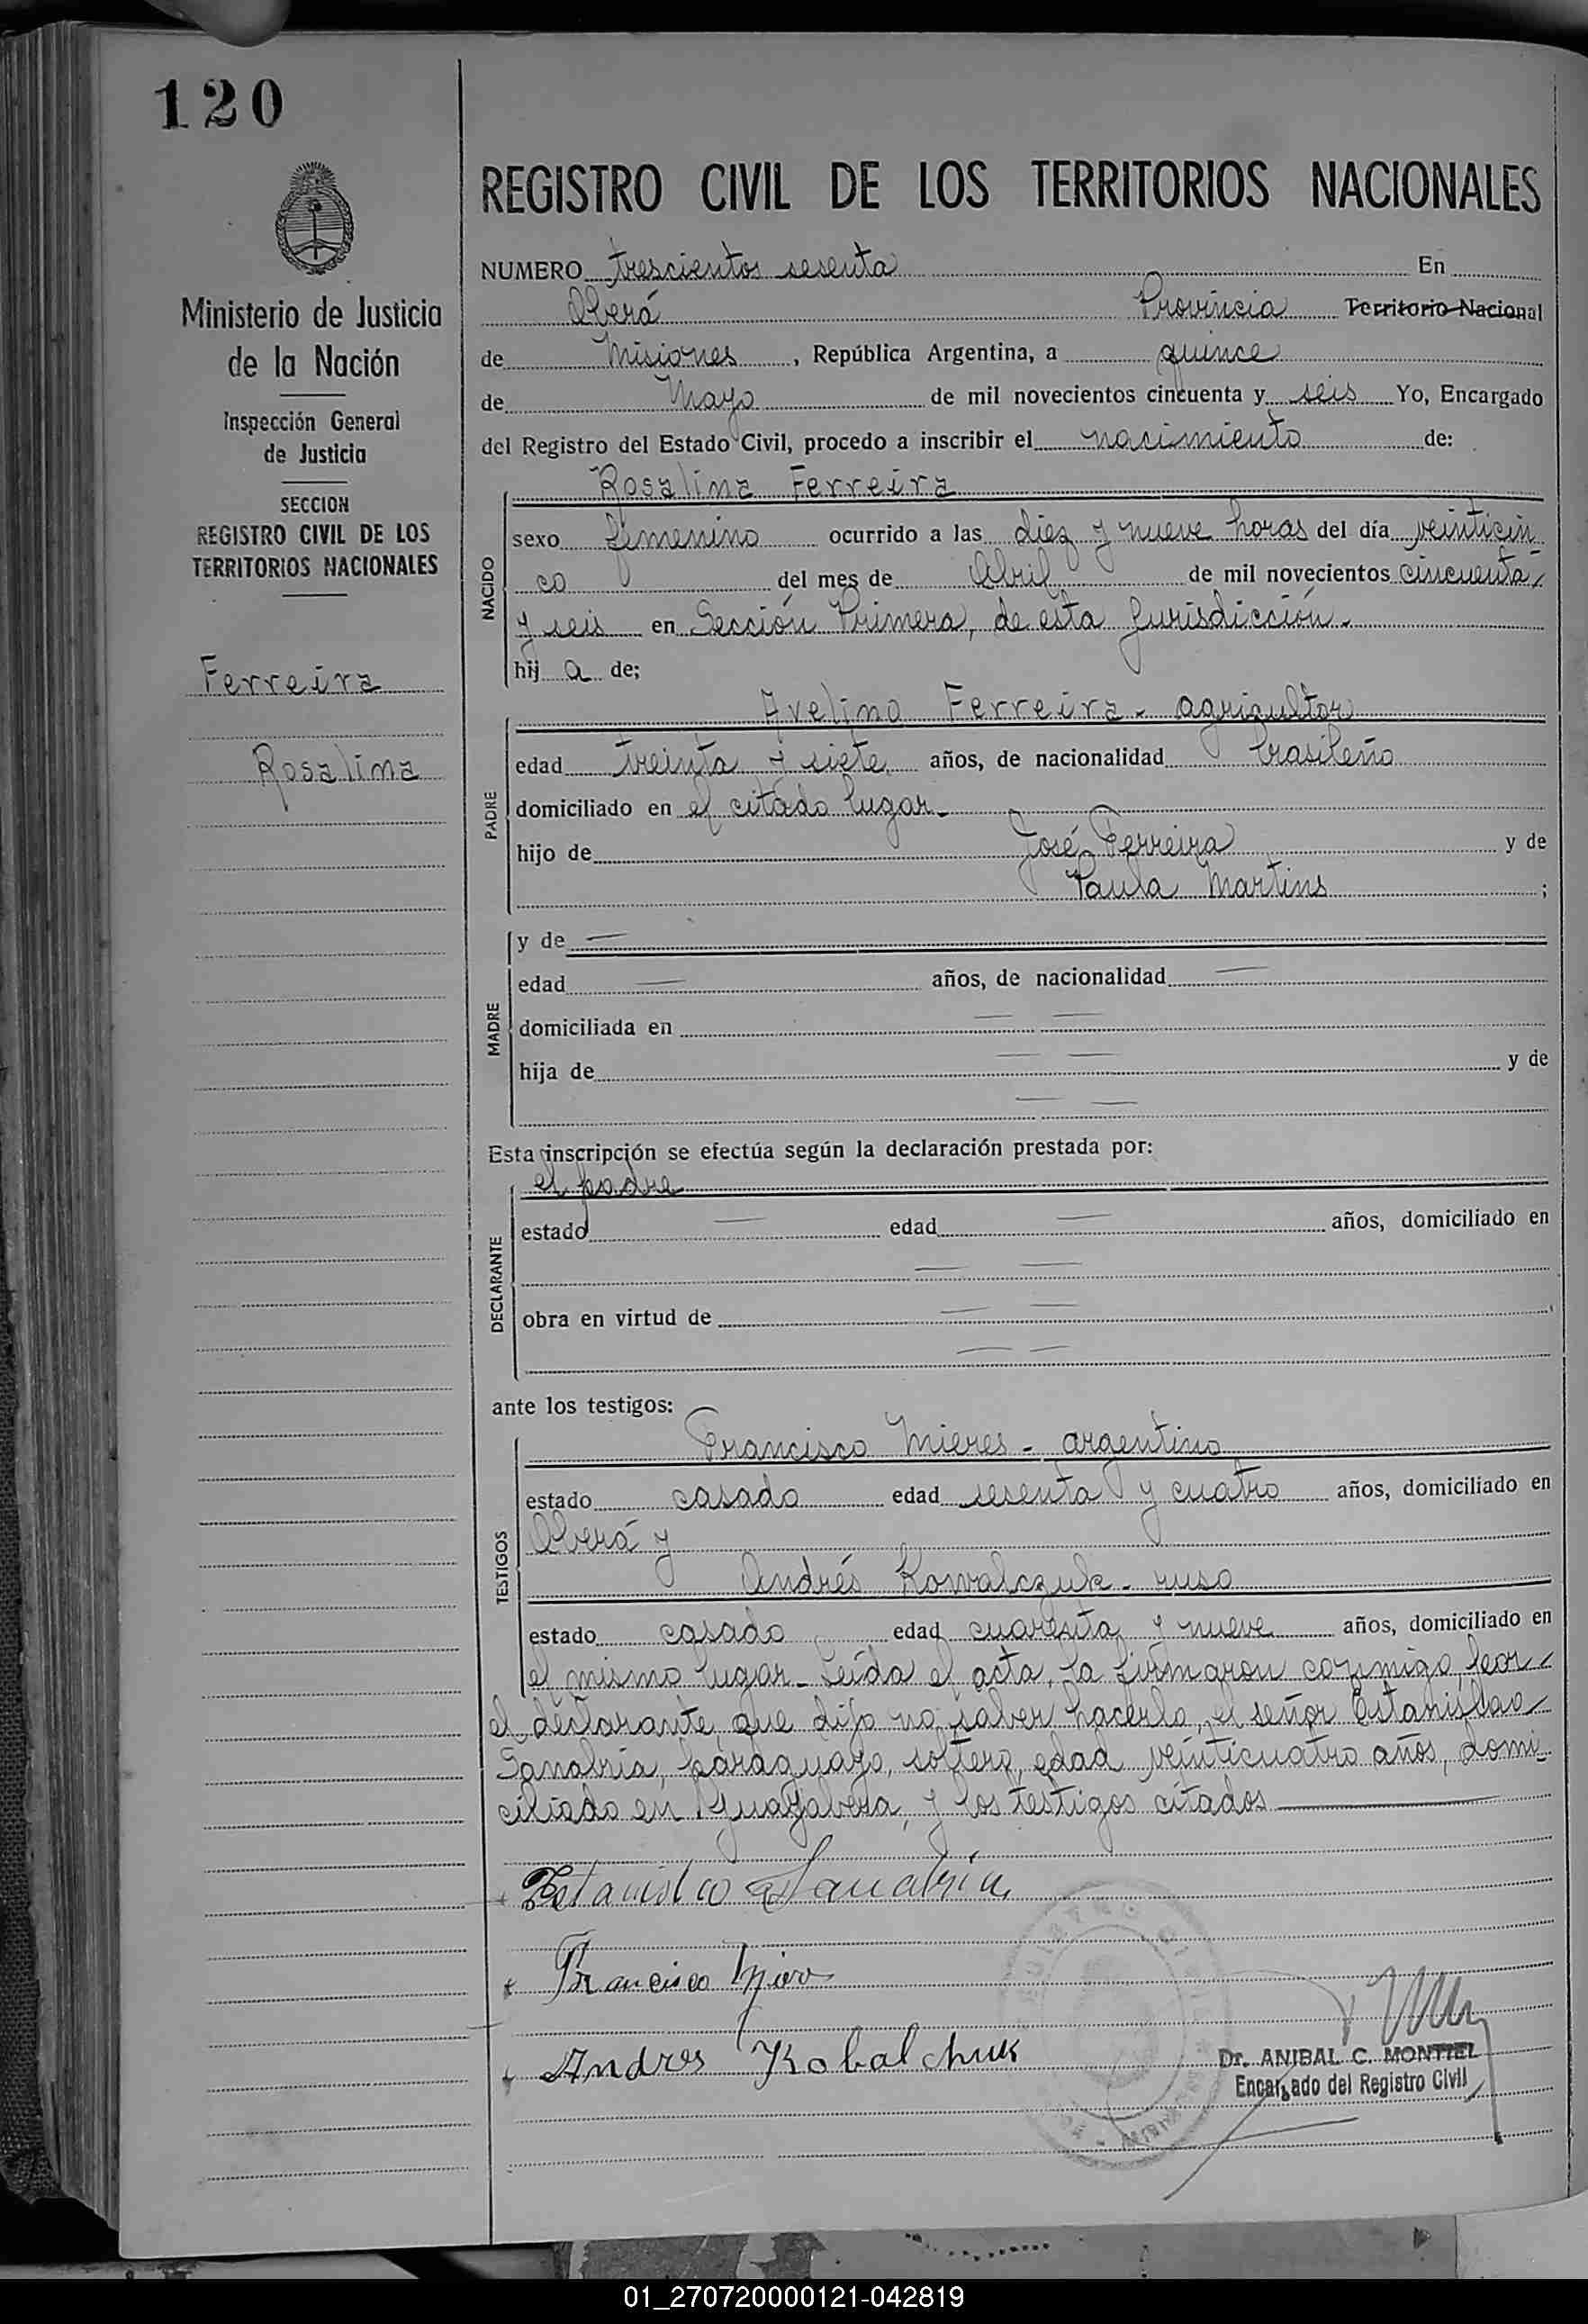 120
REGISTRO CIVIL DE LOS TERRITORIOS NACIONALES
Ministerio de Justicia
de la Nación
Inspección General
de Justicia
SECCION
REGISTRO CIVIL DE LOS
TERRITORIOS NACIONALES
Ferreira
Rosalina
NUMERO trescientos sesenta En
Oberá Provincia Territorio Nacional
de Misiones, República Argentina, a quince
de Mayo de mil novecientos cincuenta y seis Yo, Encargado
del Registro del Estado Civil, procedo a inscribir el nacimiento de:
NACIDO
Rosalina Ferreira
sexo femenino ocurrido a las diez y nueve horas del día veinticin
co del mes de Abril de mil novecientos cincuenta
y seis en Sección Primera, de esta Jurisdicción.
hij a de;
PADRE
Avelino Ferreira - agricultor
edad treinta y siete años, de nacionalidad brasileño
domiciliado en el citado lugar.
hijo de José Ferreira y de
Paula Martins ;
MADRE
y de —
edad — años, de nacionalidad —
domiciliada en — —
hija de — — y de
— —
Esta inscripción se efectúa según la declaración prestada por:
DECLARANTE
el padre
estado — edad — años, domiciliado en
— —
obra en virtud de — —
— —
ante los testigos:
TESTIGOS
Francisco Mieres - argentino
estado casado edad sesenta y cuatro años, domiciliado en
Oberá y
Andrés Kowalczuk - ruso
estado casado edad cuarenta y nueve años, domiciliado en
el mismo lugar. Leída el acta, la firmaron conmigo, por
el declarante que dijo no saber hacerlo, el señor Estanislao
Sanabria, paraguayo, soltero, edad veinticuatro años, domi-
ciliado en Guayabera, y los testigos citados
Estanislao Sanabria
Francisco
Andres Kobalchuk
REGISTRO CIVIL
Dr. ANIBAL C. MONTIEL
Encargado del Registro Civil
01_270720000121-042819